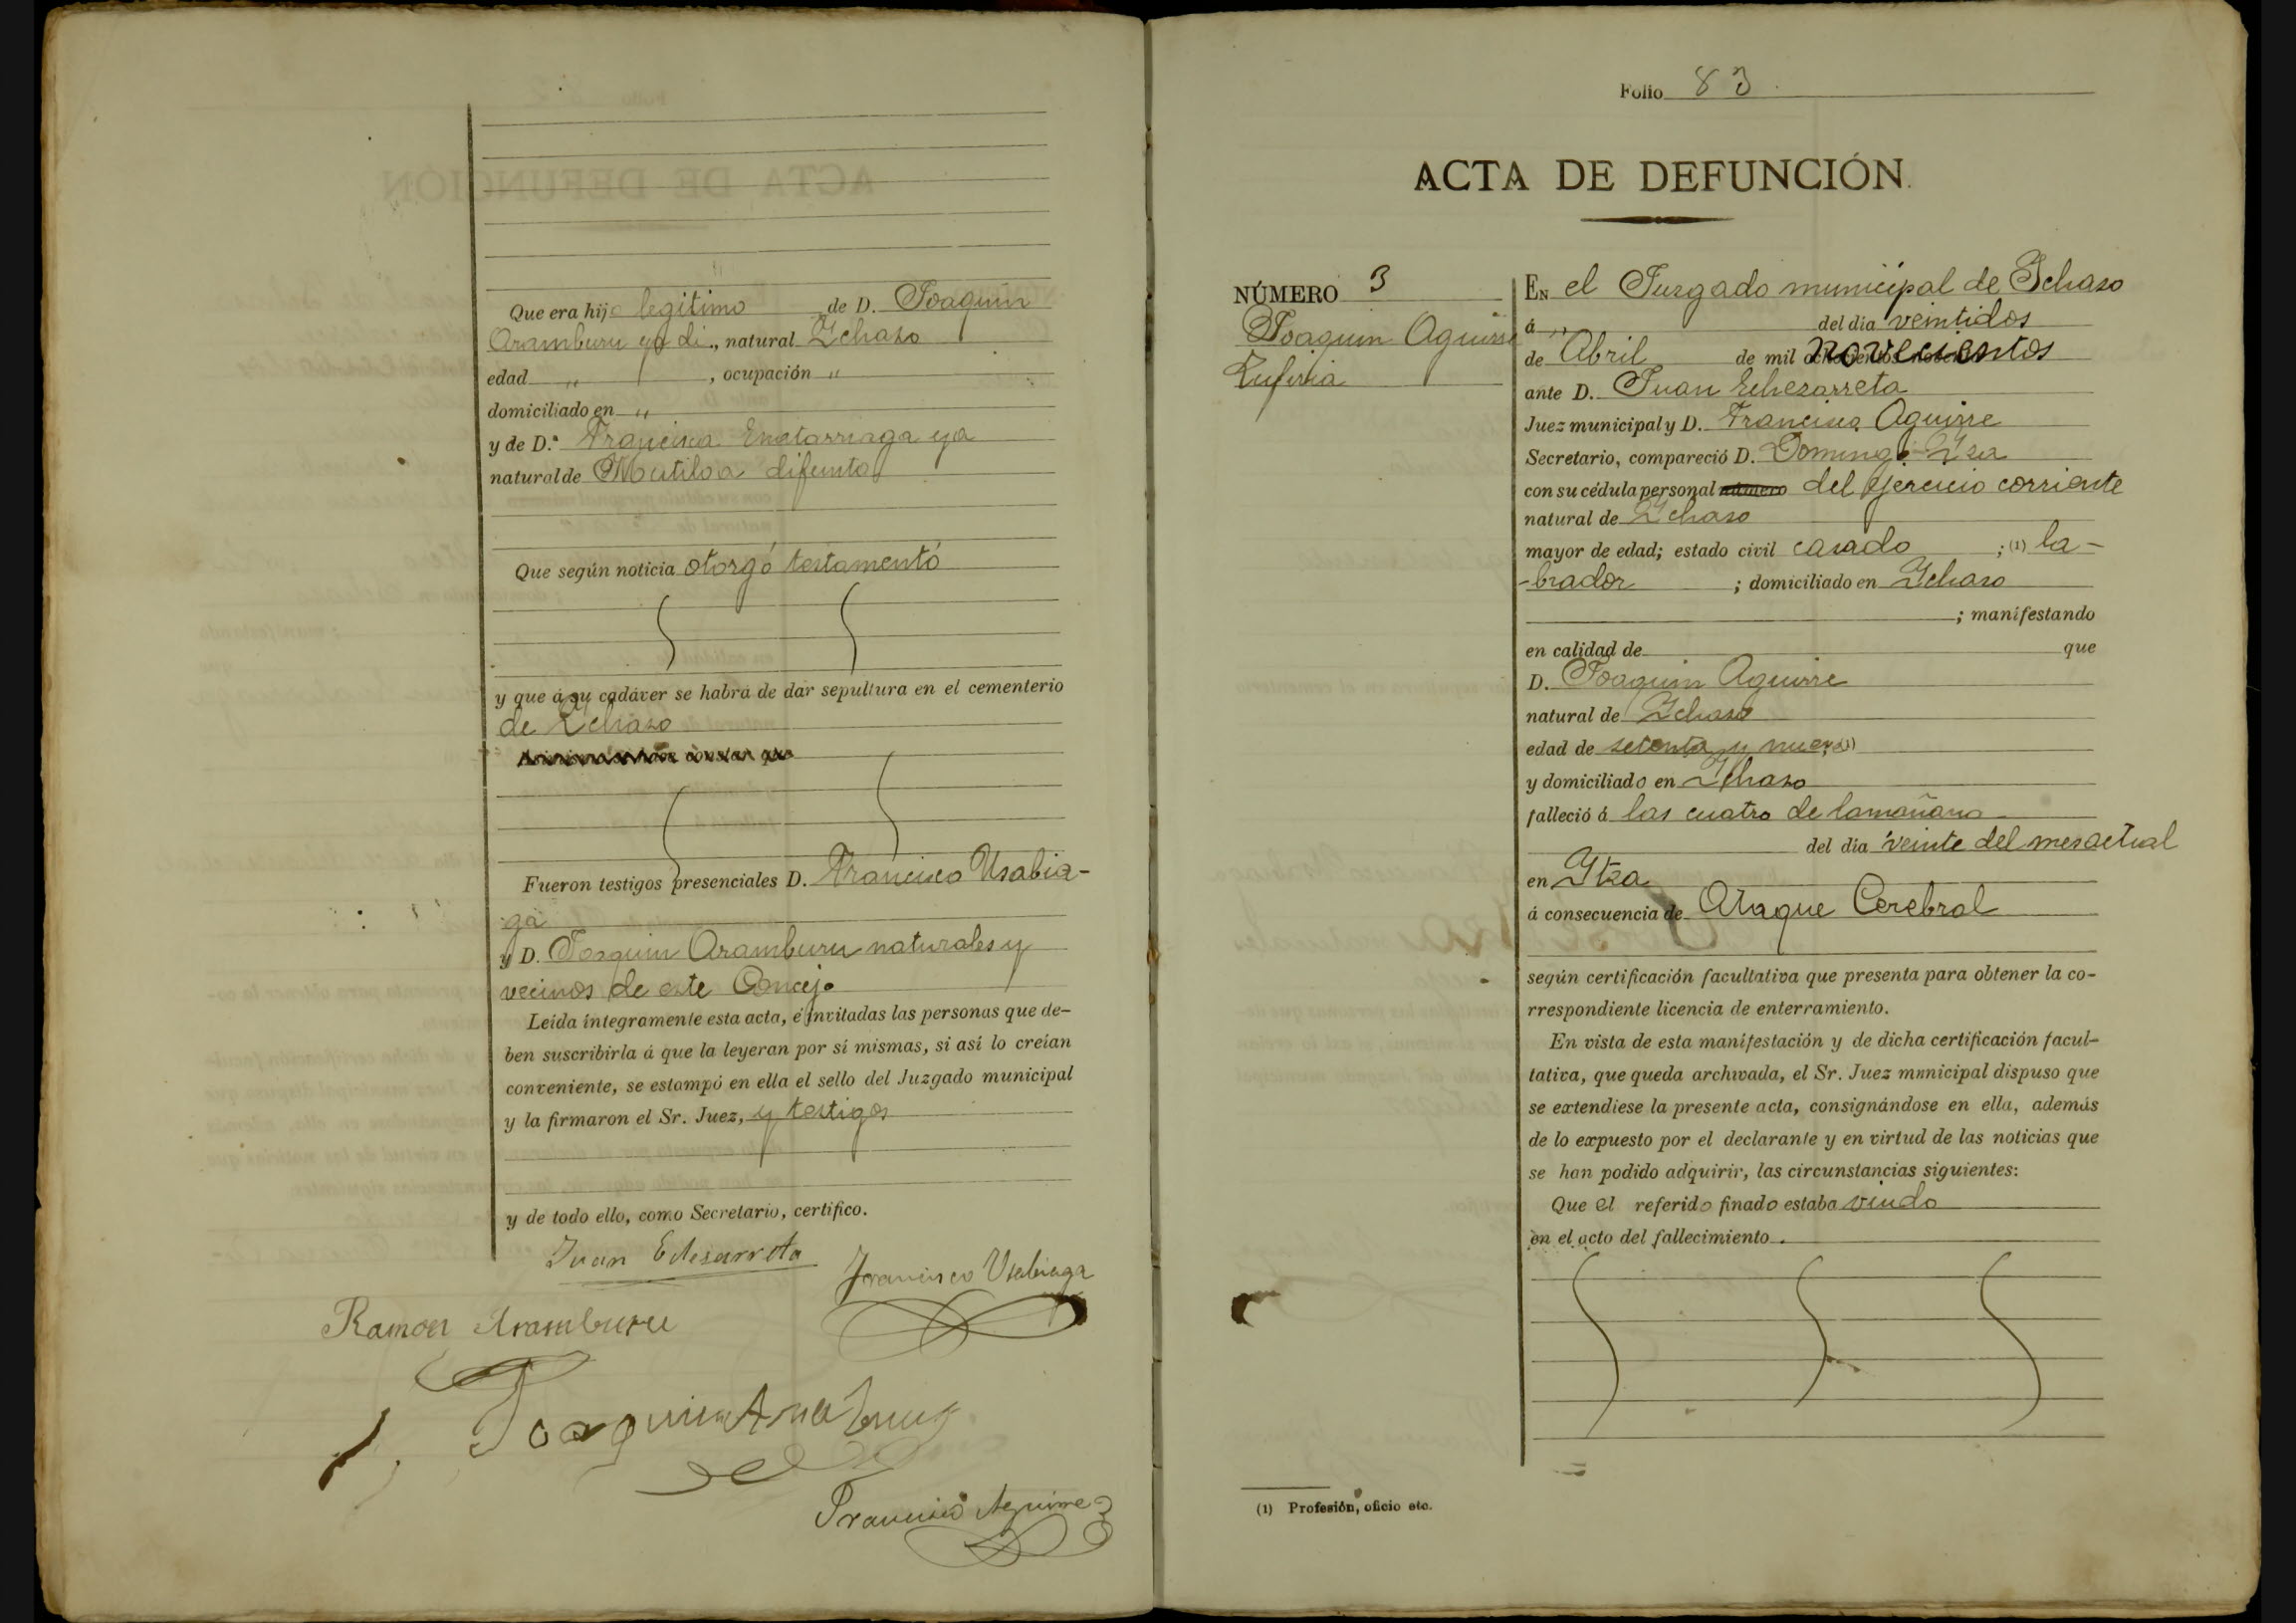 Que era hijo legitimo de D. Joaquin
Aramburu ya di., natural Ychaso
edad " , ocupación "
domiciliado en "
y de D.ª Francisca ya
natural de Mutiloa difunta
Que según noticia otorgó testamento
y que á su cadáver se habrá de dar sepultura en el cementerio
de Ychaso
Fueron testigos presenciales D. Francisco Usabia-
ga
y D. Joaquin Aramburu naturales y
vecinos de este Concejo
Leída íntegramente esta acta, é invitadas las personas que de-
ben suscribirla á que la leyeran por sí mismas, si así lo creían
conveniente, se estampó en ella el sello del Juzgado municipal
y la firmaron el Sr. Juez, y testigos
y de todo ello, como Secretario, certifico.
Juan Echesarreta
Francisco Usabiaga
Ramon Aramburu
Joaquin
Francisco Aguirre
Folio 83
ACTA DE DEFUNCIÓN.
NÚMERO 3
Joaquin Aguirre
EN el Jusgado municipal de Ychaso
á " del dia veintidos
de Abril de mil novecientos
ante D. Juan Echesarreta
Juez municipal y D. Francisco Aguirre
Secretario, compareció D. Domingo
con su cédula personal número del Ejercicio corriente
natural de Ychaso
mayor de edad; estado civil casado ; (1) la-
-brador ; domiciliado en Ychaso
; manifestando
en calidad de que
D. Joaquin Aguirre
natural de Ychaso
edad de setenta y nueve
y domiciliado en Ychaso
falleció á las cuatro de la mañana
del día veinte del mes actual
en Ytza
á consecuencia de Ataque Cerebral
según certificación facultativa que presenta para obtener la co-
rrespondiente licencia de enterramiento.
En vista de esta manifestación y de dicha certificación facul-
tativa, que queda archivada, el Sr. Juez municipal dispuso que
se extendiese la presente acta, consignándose en ella, además
de lo expuesto por el declarante y en virtud de las noticias que
se han podido adquirir, las circunstancias siguientes:
Que el referido finado estaba viudo
en el acto del fallecimiento.
(1) Profesión, oficio etc.